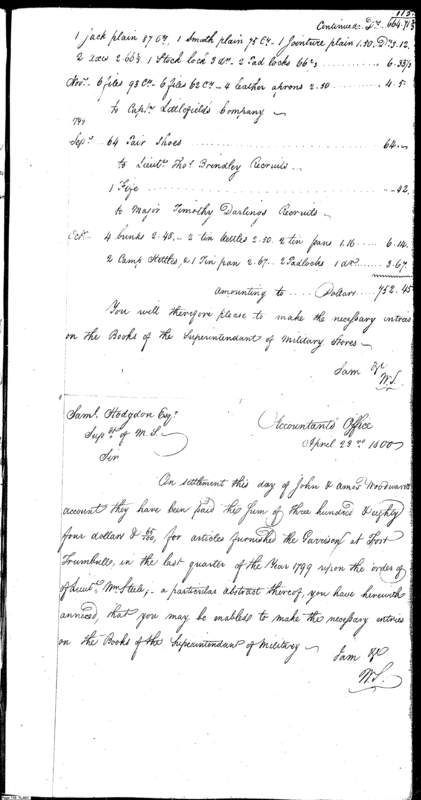 115.
Continued. Drs. 664.71⅓
1 jack plain 87 Cts. 1 Smoth plain 75 Cts - 1 Jointure plain 1.50. Drs 3.12.
2 axes 2.66⅔ 1 Stock lock 3 drs. 2 Pad locks 66⅔ ... 6.33⅓
Novr. 6 files 93 Cts - 6 files 62 Cts - 4 leather aprons 2.50 ... 4.5.
to Captn. Littlefield's Company
799
Sepr. 64 Pair Shoes ... 64.
to Lieutt. Thos. Brindley Recruits
1 Fife ... 42.
to Major Timothy Darlings Recruits
Octr. 4 bunks 2.48. - 2 tin kettles 2.50. 2 tin pans 1.16 ... 6.14.
2 Camp Kettles, & 1 Tin pan 2.67 - 2 Padlocks 1 dr. ... 3.67.
amounting to ... Dollars ... 752.45
You will therefore please to make the necessary entries
on the Books of the Superintendant of Military Stores
I am &c
W.S.
Saml. Hodgdon Esqr.
Supt. of M.S.
Sir
Accountant's Office
April 23rd 1800
On settlement this day of John & Amos Woodwards
account they have been paid the Sum of three hundred & eighty
four dollars & /100, for articles furnished the Garrison at Fort
Trumbull, in the last quarter of the Year 1799 upon the order of
of Lieut. Wm Steele; a particular abstract thereof, you have herewith
annexed, that you may be enabled to make the necessary entries
on the Books of the Superintendant of Military
I am &c
W.S.